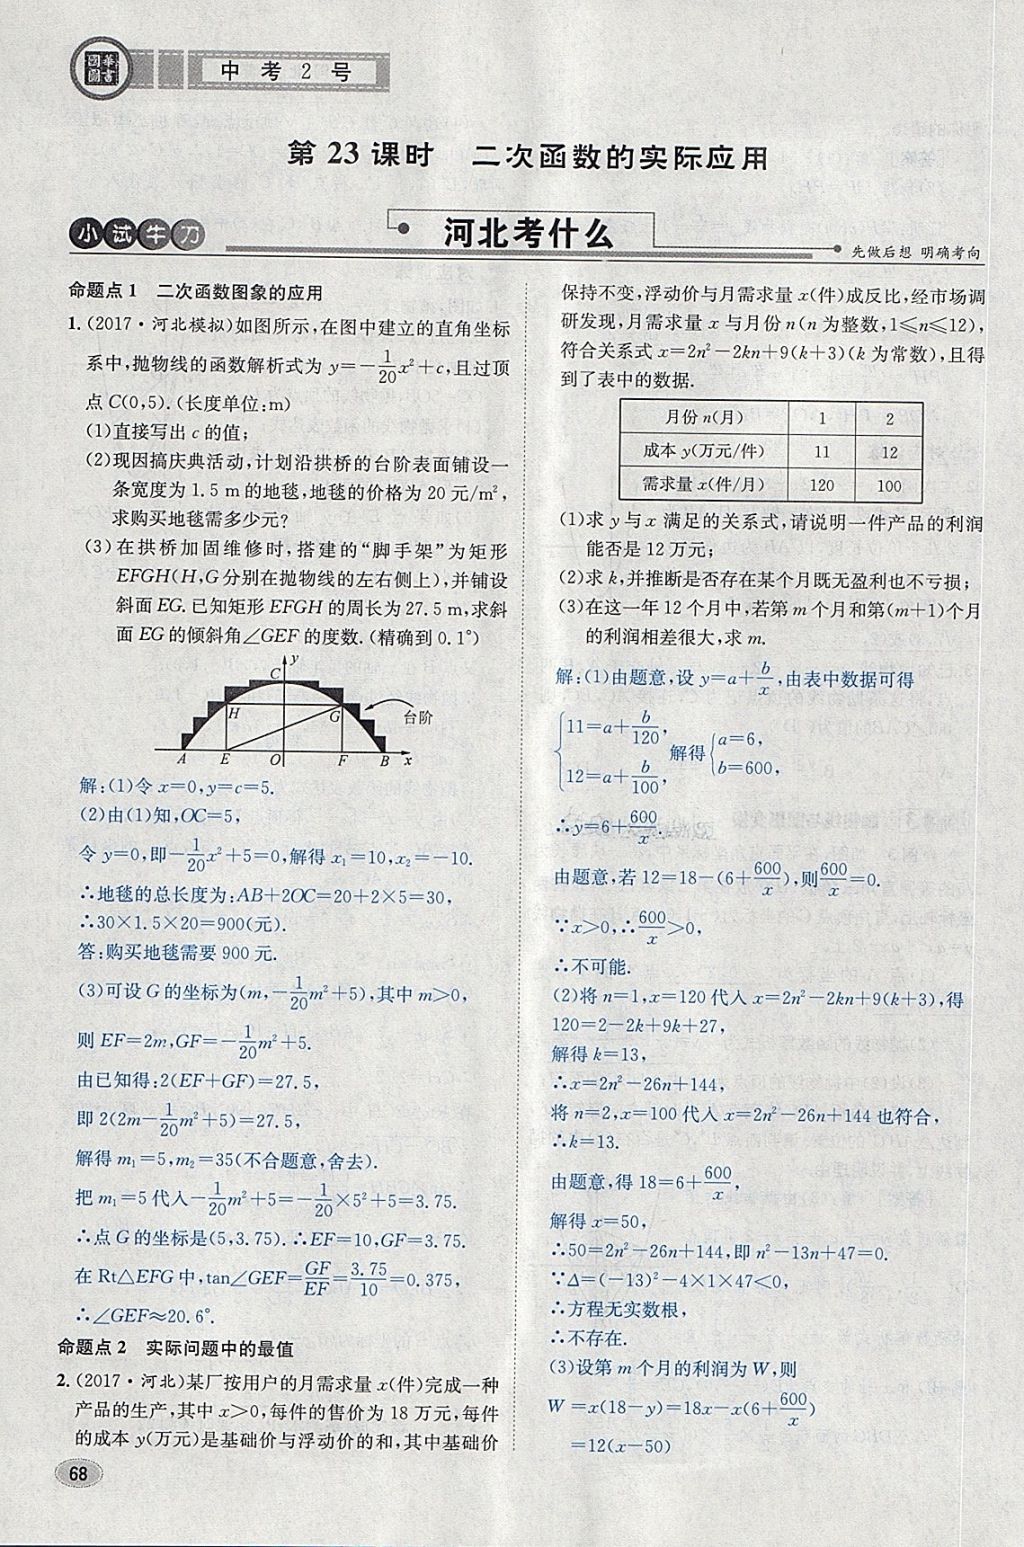 國華圖書
中考2号
第23课时 二次函数的实际应用
小试牛刀
河北考什么
先做后想 明确考向
命题点1 二次函数图象的应用
1.(2017·河北模拟)如图所示,在图中建立的直角坐标
系中,抛物线的函数解析式为 y=-1/20x²+c,且过顶
点 C(0,5).(长度单位:m)
(1)直接写出 c 的值;
(2)现因搞庆典活动,计划沿拱桥的台阶表面铺设一
条宽度为 1.5 m 的地毯,地毯的价格为 20 元/m²,
求购买地毯需多少元?
(3)在拱桥加固维修时,搭建的“脚手架”为矩形
EFGH(H,G分别在抛物线的左右侧上),并铺设
斜面 EG.已知矩形 EFGH 的周长为 27.5 m,求斜
面 EG 的倾斜角∠GEF 的度数.(精确到 0.1°)
y
C
H
G
台阶
A E O F B x
解:(1)令 x=0,y=c=5.
(2)由(1)知,OC=5,
令 y=0,即-1/20x²+5=0,解得 x₁=10,x₂=-10.
∴地毯的总长度为:AB+2OC=20+2×5=30,
∴30×1.5×20=900(元).
答:购买地毯需要 900 元.
(3)可设 G 的坐标为(m,-1/20m²+5),其中 m>0,
则 EF=2m,GF=-1/20m²+5.
由已知得:2(EF+GF)=27.5,
即 2(2m-1/20m²+5)=27.5,
解得 m₁=5,m₂=35(不合题意,舍去).
把 m₁=5 代入-1/20m²+5=-1/20×5²+5=3.75.
∴点 G 的坐标是(5,3.75).∴EF=10,GF=3.75.
在 Rt△EFG 中,tan∠GEF=GF/EF=3.75/10=0.375,
∴∠GEF≈20.6°.
命题点2 实际问题中的最值
2.(2017·河北)某厂按用户的月需求量 x(件)完成一种
产品的生产,其中 x>0,每件的售价为 18 万元,每件
的成本 y(万元)是基础价与浮动价的和,其中基础价
68
保持不变,浮动价与月需求量 x(件)成反比,经市场调
研发现,月需求量 x 与月份 n(n 为整数,1≤n≤12),
符合关系式 x=2n²-2kn+9(k+3)(k 为常数),且得
到了表中的数据.
月份 n(月) 1 2
成本 y(万元/件) 11 12
需求量 x(件/月) 120 100
(1)求 y 与 x 满足的关系式,请说明一件产品的利润
能否是 12 万元;
(2)求 k,并推断是否存在某个月既无盈利也不亏损;
(3)在这一年 12 个月中,若第 m 个月和第(m+1)个月
的利润相差很大,求 m.
解:(1)由题意,设 y=a+b/x,由表中数据可得
{11=a+b/120, 12=a+b/100, 解得{a=6, b=600,
∴y=6+600/x.
由题意,若 12=18-(6+600/x),则600/x=0.
∵x>0,∴600/x>0,
∴不可能.
(2)将 n=1,x=120 代入 x=2n²-2kn+9(k+3),得
120=2-2k+9k+27,
解得 k=13,
∴x=2n²-26n+144,
将 n=2,x=100 代入 x=2n²-26n+144 也符合,
∴k=13.
由题意,得 18=6+600/x,
解得 x=50,
∴50=2n²-26n+144,即 n²-13n+47=0.
∵Δ=(-13)²-4×1×47<0,
∴方程无实数根,
∴不存在.
(3)设第 m 个月的利润为 W,则
W=x(18-y)=18x-x(6+600/x)
=12(x-50)